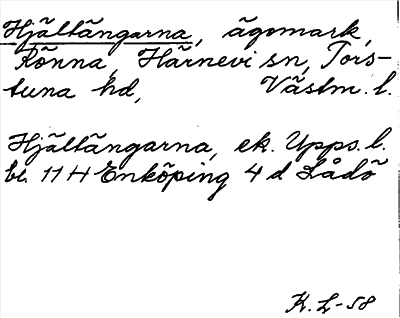 Hjältängarna, ägomark,
Rönna, Härnevi sn, Tors-
tuna hd, Västm. l.
Hjältängarna, ek. Upps. l.
bl. 11 H Enköping 4 d Lådö
K. L-58